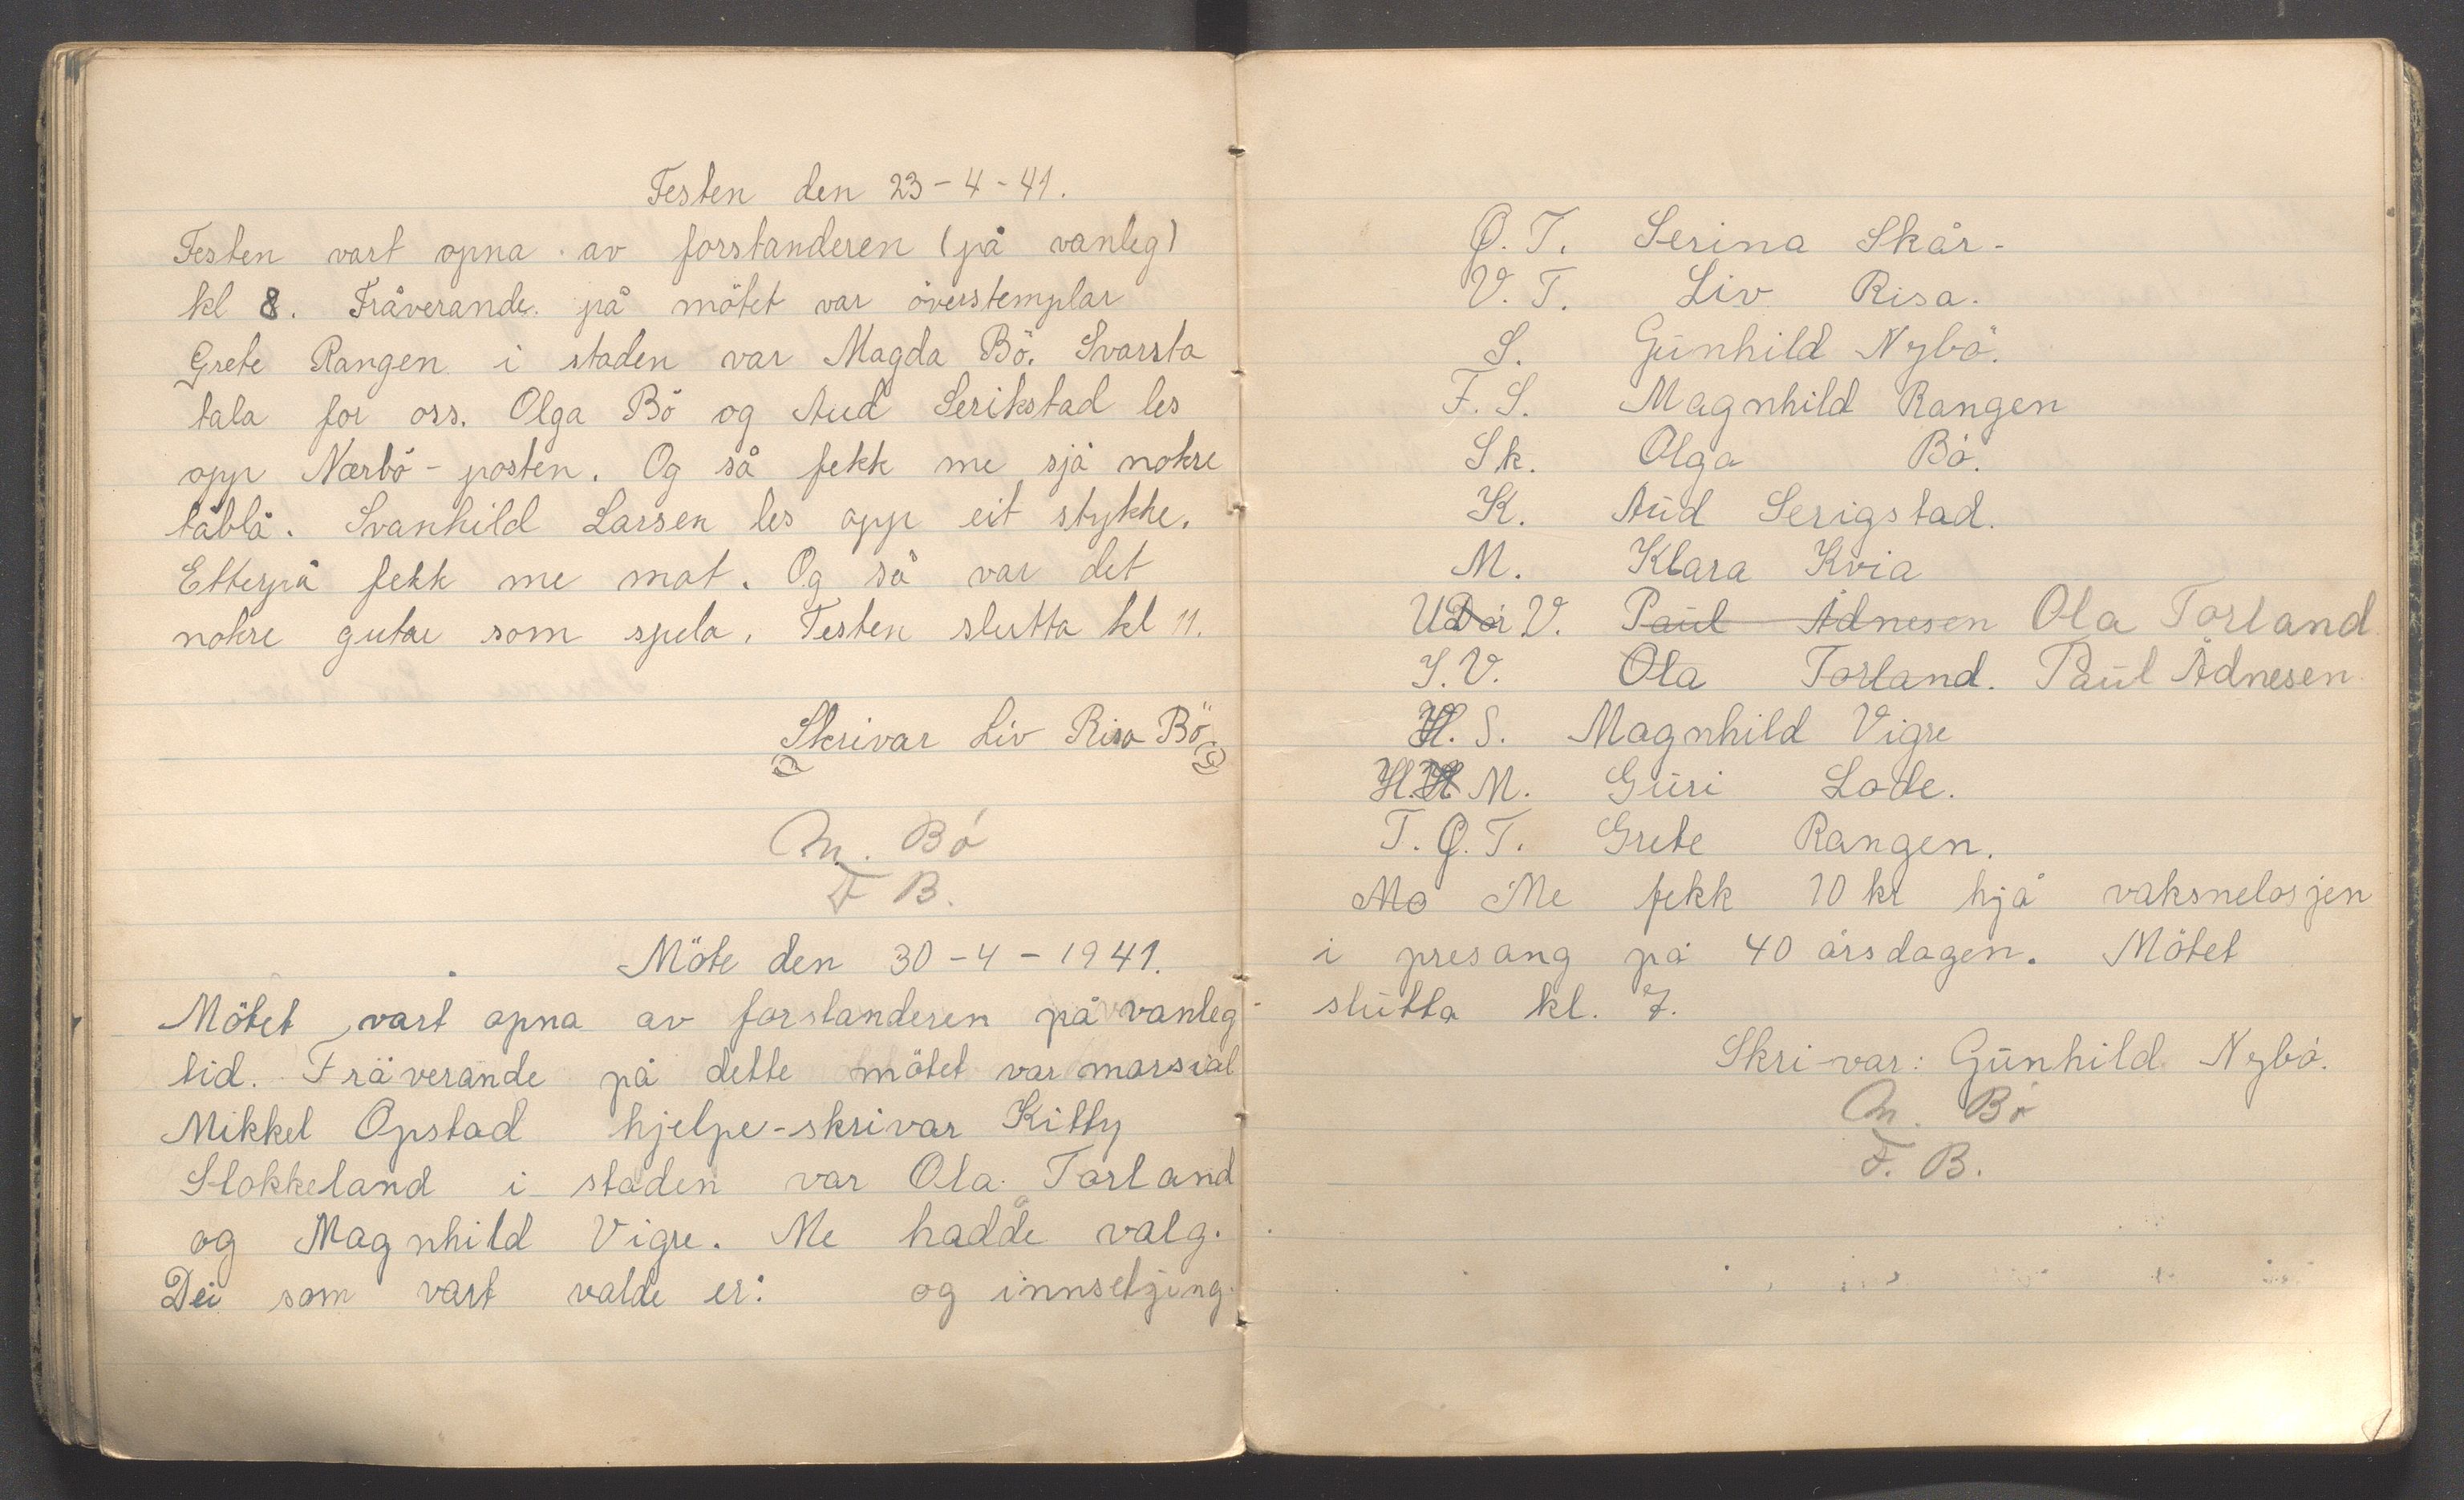 Festen den 23-4-41.
Festen vart opna av forstanderen (på vanleg)
kl 8. Fråverande på mötet var överstemplar
Grete Rangen i staden var Magda Bö. Svarsta
tala for oss. Olga Bö og Aud Serikstad les
opp Nærbö-posten. Og så fekk me sjå nokre
tablå. Svanhild Larsen les opp eit stykke.
Etterpå fekk me mat. Og så var det
nokre gutar som spela. Festen slutta kl 11.
Skrivar Liv Risa Bö
M. Bö
F B.
Möte den 30-4-1941.
Mötet vart opna av forstanderen på vanleg
tid. Fråverande på dette mötet var marsial
Mikkel Opstad hjelpe-skrivar Kitty
Stokkeland i staden var Ola Torland
og Magnhild Vigre. Me hadde valg.
Dei som vart valde er: og innsetjing.
Ø.T. Serina Skår.
V.T. Liv Risa.
S. Gunhild Nybö.
F.S. Magnhild Rangen
Sk. Olga Bö.
K. Aud Serigstad.
M. Klara Kvia
U V. Paul Ådnesen Ola Torland
I.V. Ola Torland. Paul Ådnesen.
H.S. Magnhild Vigre
H. M. Guri Lode.
T.Ø.T. Grete Rangen.
Mo Me fekk 10 kr hjå vaksnelosjen
i presang på 40 årsdagen. Mötet
slutta kl. 7.
Skri-var: Gunhild Nybö.
M. Bö
F. B.